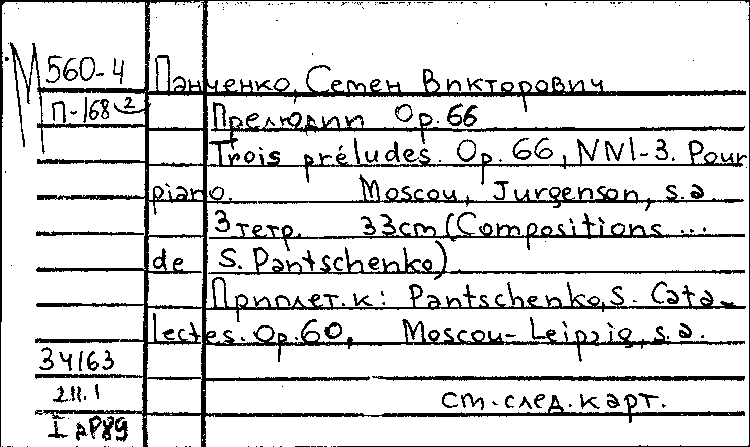 М 560-4 Панченко, Семен Викторович
П-168 2 Прелюдии Ор.66
Trois préludes. Op.66, NN1-3. Pour
piano. Moscou, Jurgenson, s.a.
3 тетр. 33cm (Compositions ...
de S. Pantschenko)
Приплет.к: Pantschenko, S. Cata-
lectes. Op.60, Moscou-Leipzig, s.a.
34163
ст.след.карт.